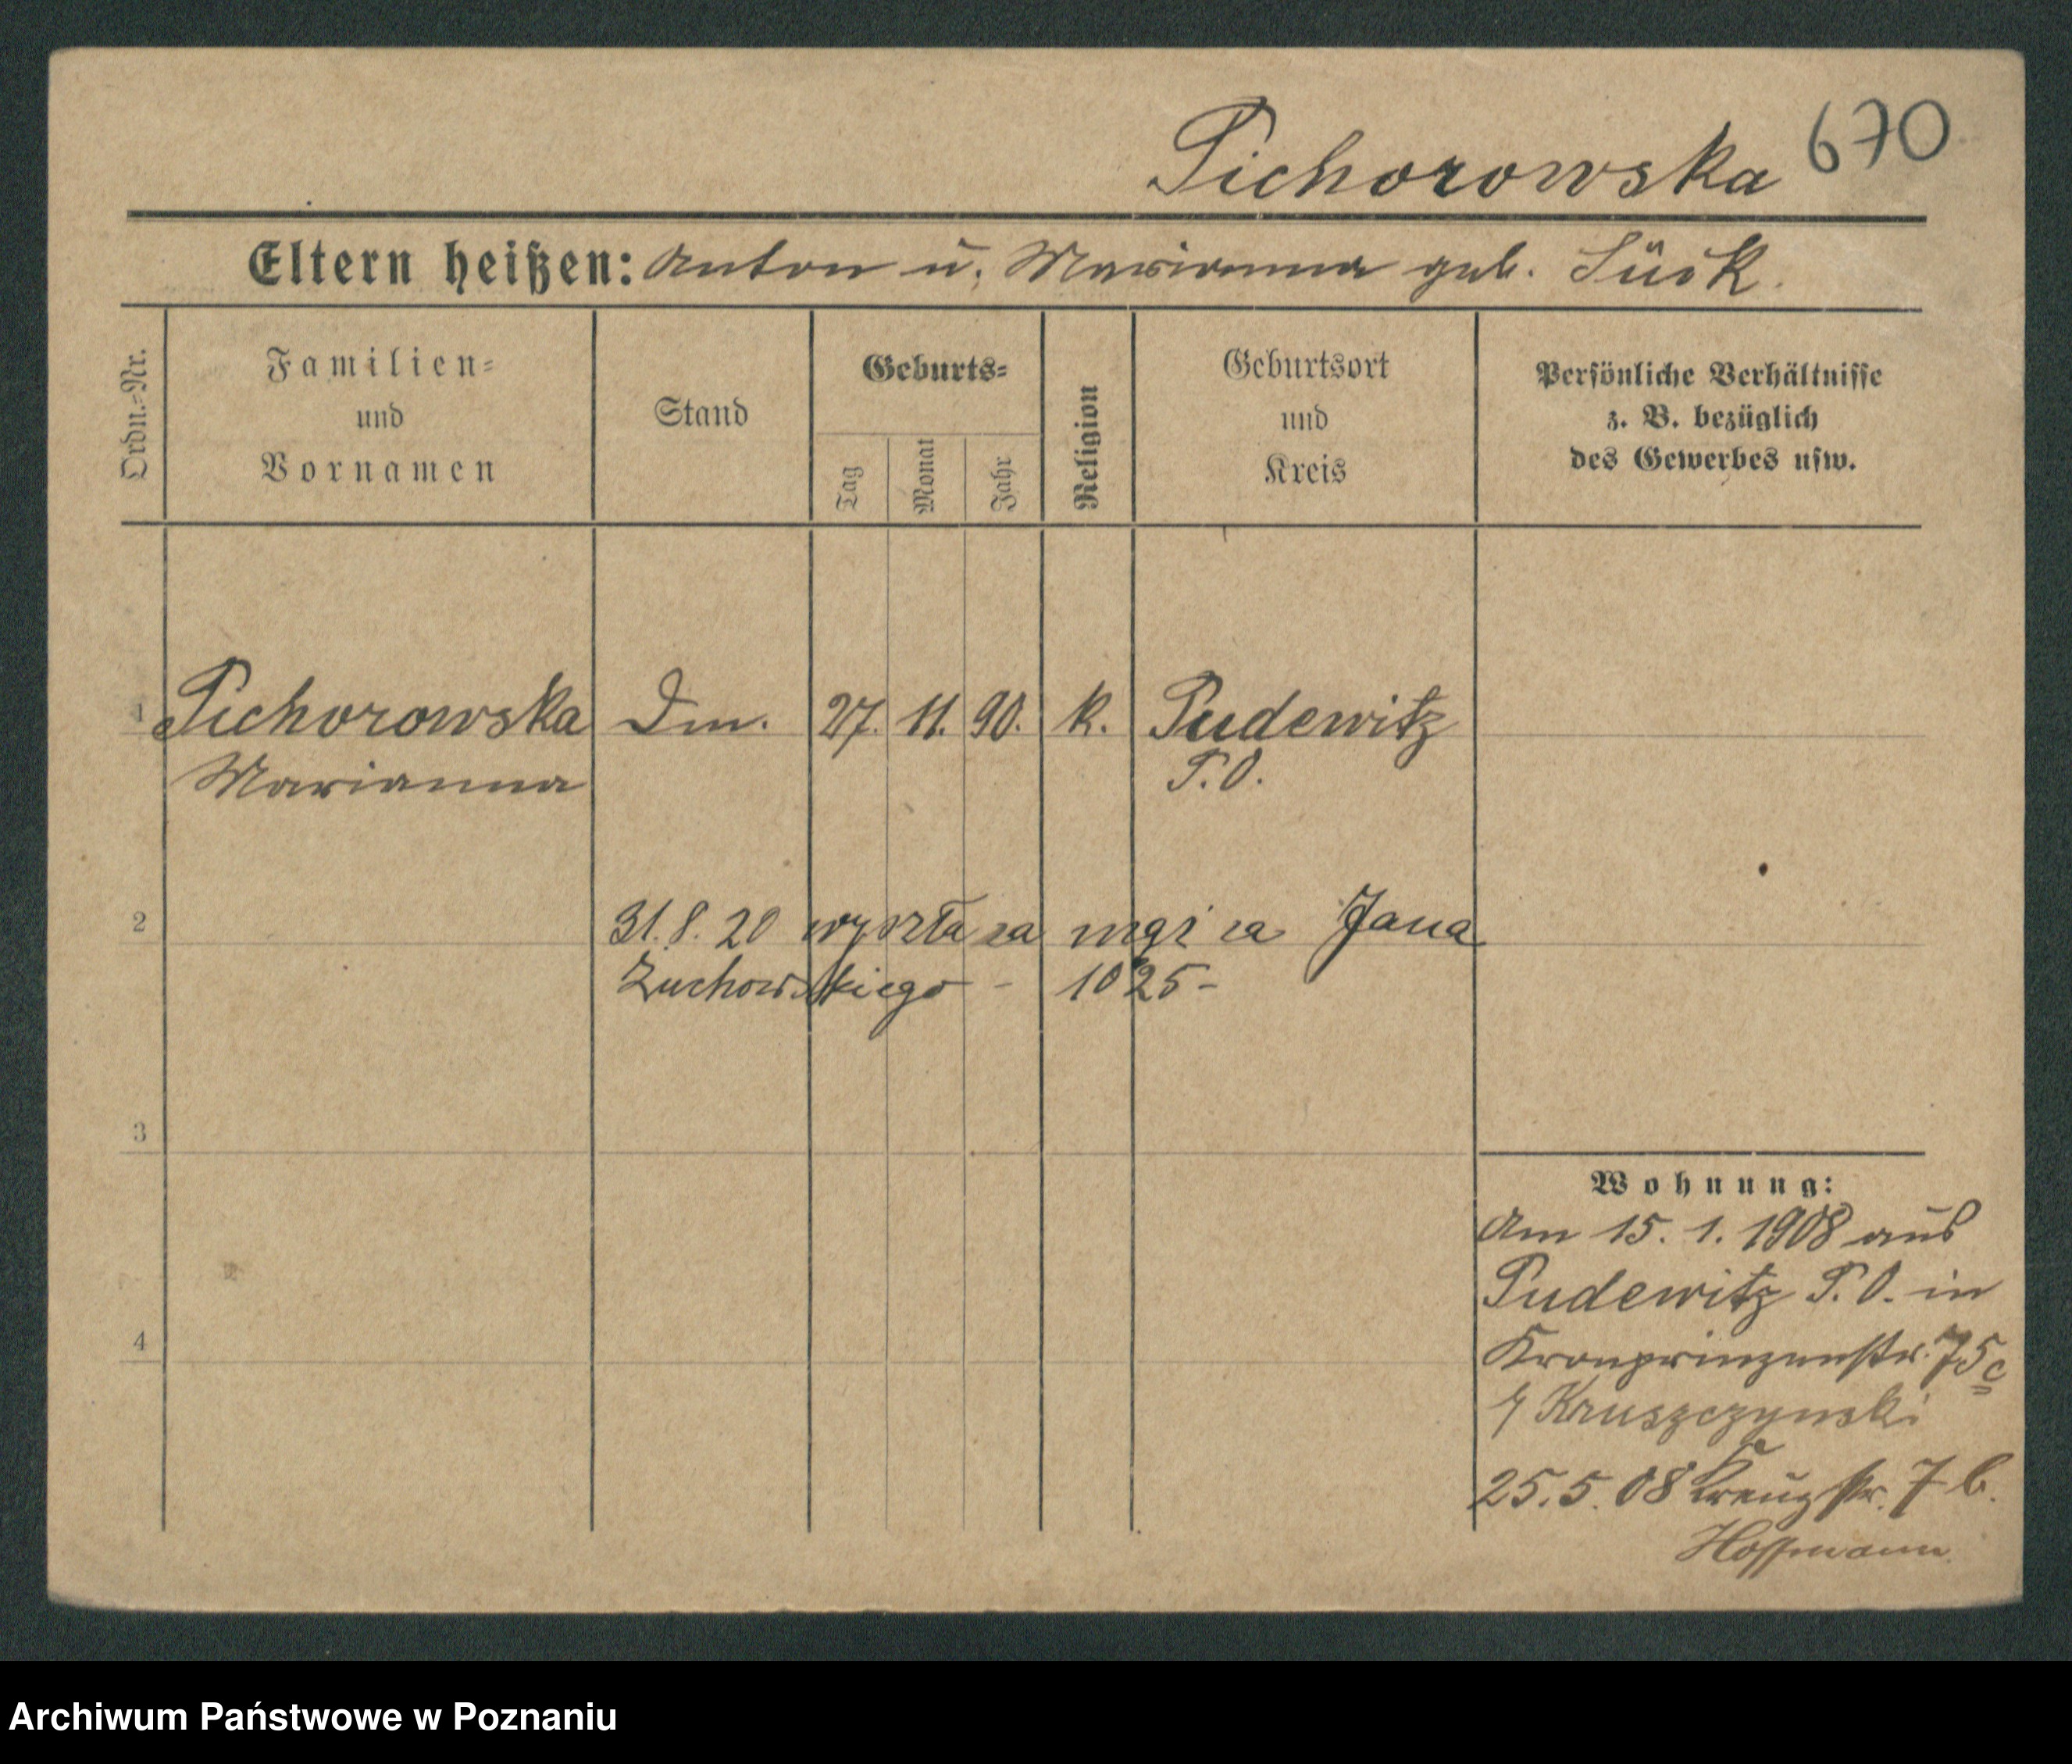 Pichorowska 670
Eltern heißen: Anton u. Marianna geb. Süsk.
Ordn.-Nr.
Familien-
und
Vornamen
Stand
Geburts-
Tag
Monat
Jahr
Religion
Geburtsort
und
Kreis
Persönliche Verhältnisse
z. B. bezüglich
des Gewerbes usw.
1 Pichorowska Dm. 27. 11. 90. k. Pudewitz
Marianna P.O.
2 31.8.20 wyszła za mąż za Jana
Żuchowskiego - 1025-
3
Wohnung:
Am 15. 1. 1908 aus
Pudewitz P.O. in
4
Kronprinzenstr. 75c
Kruszczynski
25.5.08 Kreuzstr. 7 b.
Hoffmann
Archiwum Państwowe w Poznaniu